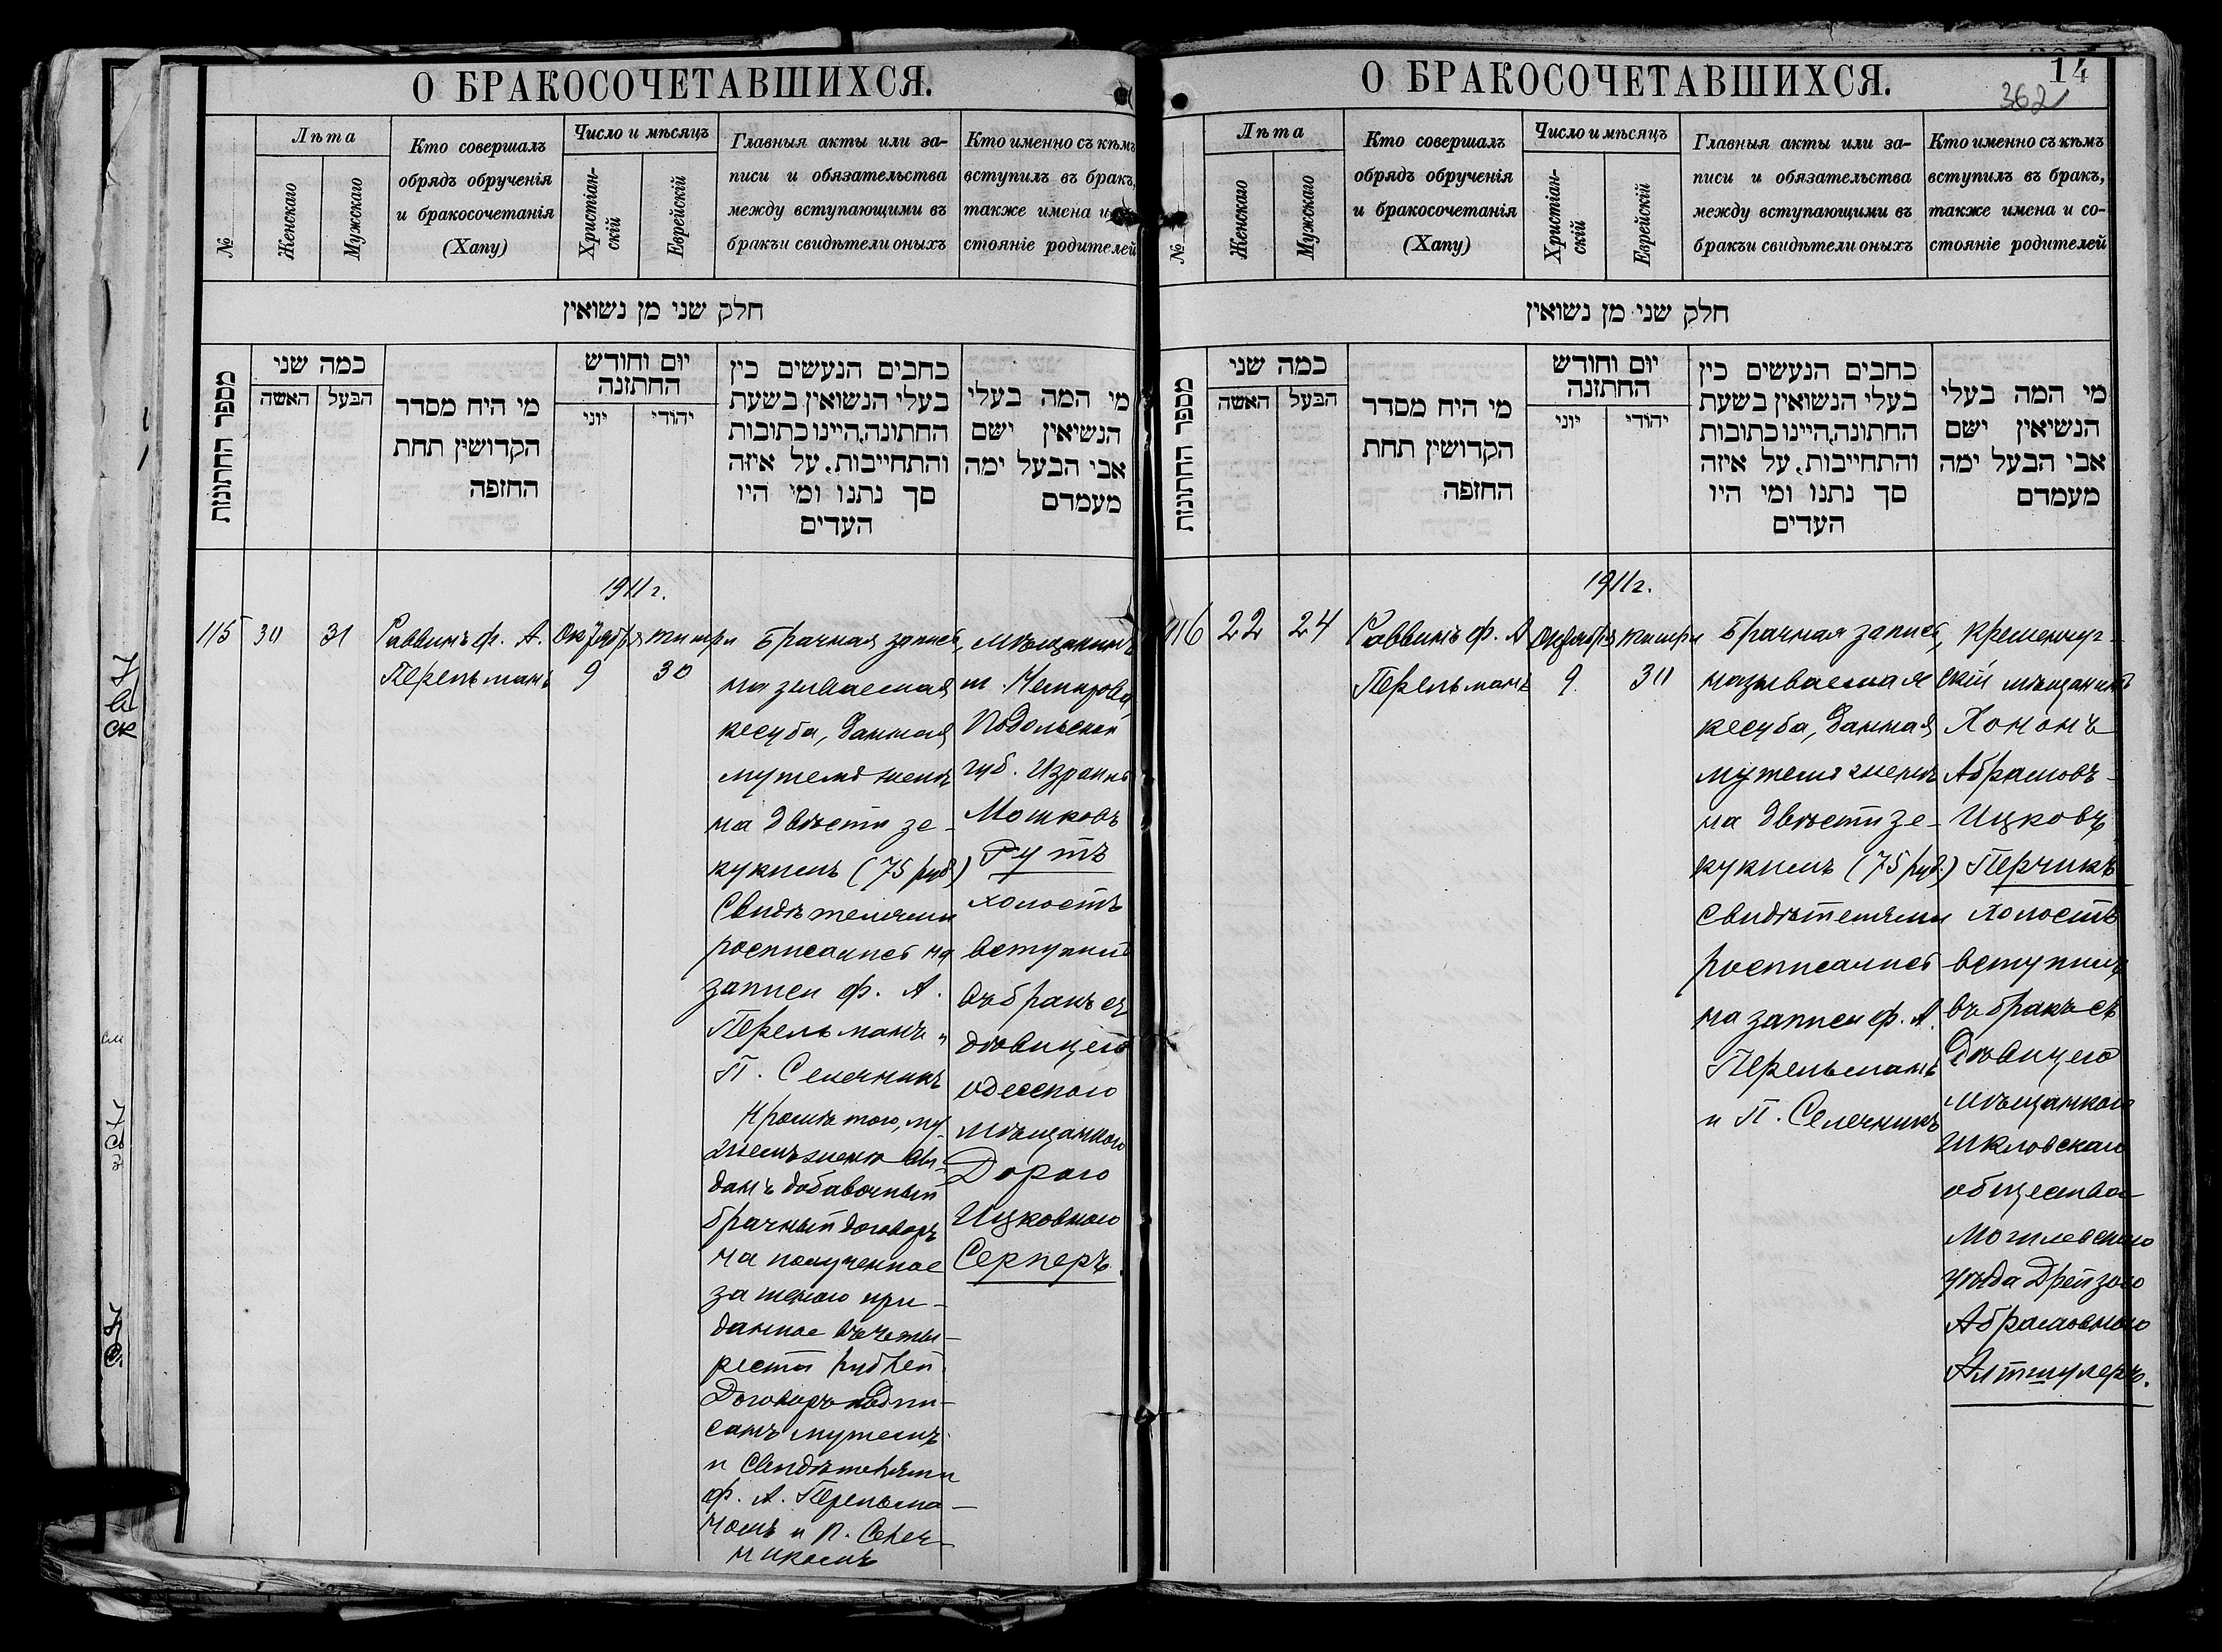 О БРАКОСОЧЕТАВШИХСЯ.
№
Лѣта
Женскаго
Мужскаго
Кто совершалъ
обрядъ обрученія
и бракосочетанія
(Хапу)
Число и мѣсяцъ
Христіан-
скій
Еврейскій
Главныя акты или за-
писи и обязательства
между вступающими въ
бракъ и свидѣтели оныхъ
Кто именно съ кѣмъ
вступилъ въ бракъ,
также имена и
стояніе родителей
חלק שני מן נשואין
מספר החתונות
כמה שני
האשה
הבעל
מי היח מסדר
הקדושין תחת
החופה
יום וחודש
החתונה
יוני
יהודי
כחבים הנעשים כין
בעלי הנשואין בשעת
החתונה,היינו כתובות
והתחייבות. על איזה
סך נתנו ומי היו
העדים
מי המה בעלי
הנשיאין ישם
אבי הבעל ימה
מעמדם
1911 г.
115
30
31
Раввинъ ф. А.
Перельманъ
Октября
9
тишри
30
Брачная запись,
называемая
кесуба, данная
мужемъ женѣ
на двѣсти зе-
кукимъ (75 руб)
Свидѣтелями
росписались на
записи ф. А.
Перельманъ и
П. Селечникъ
Кромѣ того, му-
жемъ женѣ вы-
данъ добавочный
брачный договоръ
на полученное
за женою при-
данное въ четы-
реста рублей.
Договоръ подпи-
санъ мужемъ
и свидѣтелями
ф. А. Перельма-
номъ и П. Селеч-
никомъ
мѣщанинъ
м. Немирова,
Подольской
губ. Израиль
Мошковъ
Рутъ
холостъ
вступилъ
въ бракъ съ
дѣвицею
одесскою
мѣщанкою
Дорою
Ицковною
Серперъ.
О БРАКОСОЧЕТАВШИХСЯ.
14
362
№
Лѣта
Женскаго
Мужскаго
Кто совершалъ
обрядъ обрученія
и бракосочетанія
(Хапу)
Число и мѣсяцъ
Христіан-
скій
Еврейскій
Главныя акты или за-
писи и обязательства
между вступающими въ
бракъ и свидѣтели оныхъ
Кто именно съ кѣмъ
вступилъ въ бракъ,
также имена и со-
стояніе родителей
חלק שני מן נשואין
מספר החתונות
כמה שני
האשה
הבעל
מי היח מסדר
הקדושין תחת
החופה
יום וחודש
החתונה
יוני
יהודי
כחבים הנעשים כין
בעלי הנשואין בשעת
החתונה,היינו כתובות
והתחייבות. על איזה
סך נתנו ומי היו
העדים
מי המה בעלי
הנשיאין ישם
אבי הבעל ימה
מעמדם
1911 г.
116
22
24
Раввинъ ф. А
Перельманъ
Октября
9
тишри
30
Брачная запись,
называемая
кесуба, данная
мужемъ женѣ
на двѣсти зе-
кукимъ (75 руб.)
Свидѣтелями
росписались
на записи ф. А.
Перельманъ
и П. Селечникъ
Кременчуг-
скій мѣщанинъ
Хононъ
Абрамовъ-
Ицковъ
Перчикъ
холостъ
вступилъ
въ бракъ съ
дѣвицею
мѣщанкою
Шкловскаго
общества
Могилевскаго
уѣзда Дрейзою
Абрамовною
Альтшулеръ.